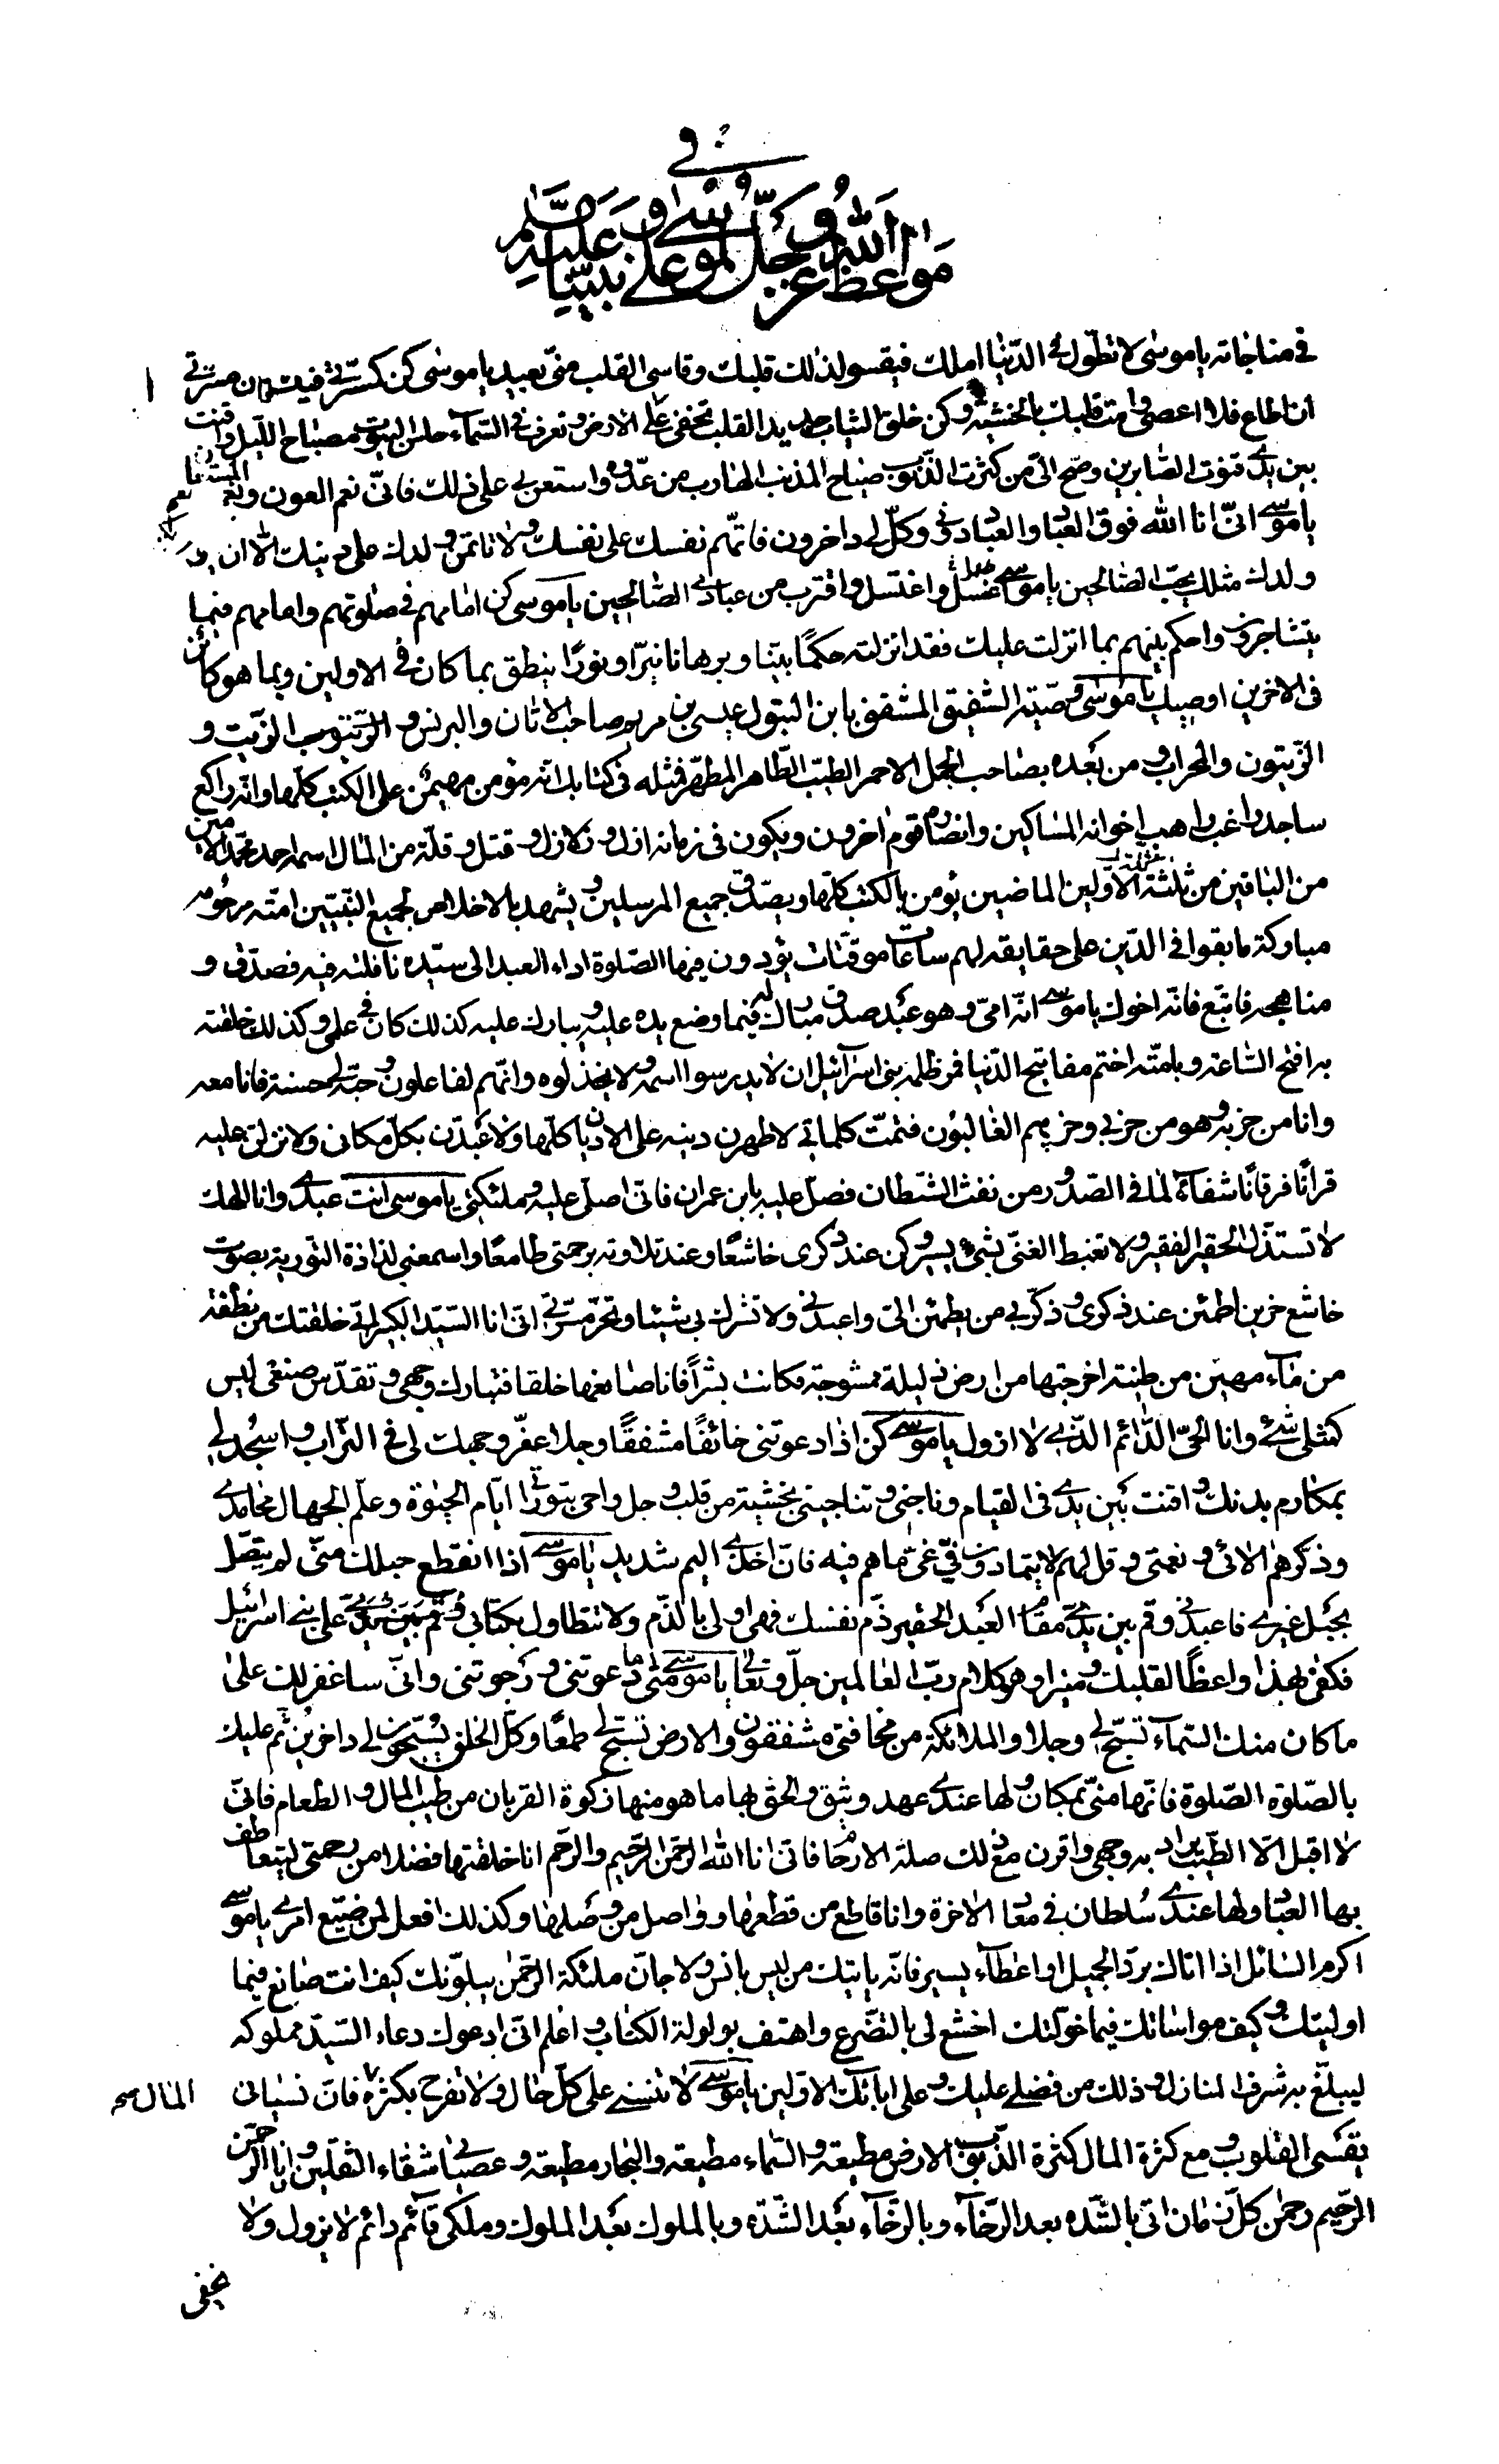 في
مواعظ الله عزّ وجلّ لموسى وعلى نبيّنا وعليه السّلم
في مناجاته يا موسى لا تطوّل في الدّنيا املك فيقسو لذلك قلبك وقاسى القلب منّى بعيد يا موسى كن كمسرّتي فيك فان مسرّتي
ان اطاع فلا اعصى وامت قلبك بالخشية وكن خلق الثياب جديد القلب تخفى على الارض وتعرف في السّماء حلس البيوت مصباح اللّيل واقنت
بين يدى قنوت الصّابرين وصح الىّ من كثرت الذّنوب صياح المذنب الهارب من عدوّه واستعن بي على ذلك فانّى نعم العون ونعم المستعان
يا موسى انّى انا الله فوق العباد والعباد دوني وكلّ لي داخرون فاتّهم نفسك على نفسك ولا تاتمن ولدك على دينك الّا ان يكون
ولدك مثلك يحبّ الصّالحين يا موسى اغسل واغتسل واقترب من عبادي الصّالحين يا موسى كن امامهم في صلوتهم وامامهم فيما
يتشاجرون واحكم بينهم بما انزلت عليك فقد انزلته حكمًا بيّنا وبرهانا نيّرا ونورًا ينطق بما كان في الاولين وبما هو كائن
في الاخرين اوصيك يا موسى وصيّة الشفيق المشفق بابن البتول عيسى بن مريم صاحب الاتان والبرنس والزّيت و
الزّيتون والمحراب ومن بعده بصاحب الجمل الاحمر الطيّب الطّاهر المطهّر فمثله في كتابك انّه مؤمن مهيمن على الكتب كلّها وانّه راكع
ساجد راغب راهب اخوانه المساكين وانصاره قوم اخرون ويكون في زمانه ازل وزلازل وقتل وقلّة من المال اسمه احمد محمّد الامين
من الباقين من ثلّة الاوّلين الماضين يؤمن بالكتب كلّها ويصدّق جميع المرسلين ويشهد بالاخلاص لجميع النّبيّين امّته مرحومه
مباركة ما بقوا في الدّين على حقايقه لهم ساعات موقّتات يؤدون فيها الصّلوة اداء العبد الى سيّده نافلته فبه فصدّق و
مناهجه فاتّبع فانّه اخوك يا موسى انّه امّى وهو عبد صدق مبارك له فيما وضع يده عليه ويبارك عليه كذلك كان في علمى وكذلك خلقته
به افتح السّاعة وبامّته اختم مفاتيح الدّنيا فمر ظلمة بني اسرآئيل ان لا يدرسوا اسمه ولا يخذلوه وانّهم لفاعلون وحبّه لي حسنة فانا معه
وانا من حزبه وهو من حزبي وحزبهم الغالبون فتمّت كلماتي لاظهرن دينه على الاديان كلّها ولاعبدّن بكلّ مكان ولانزلن عليه
قرانًا فرقانًا شفاء لما في الصّدور من نفث الشيطان فصلّ عليه يابن عمران فانّى اصلّى عليه وملئكتي يا موسى انت عبدي وانا الهك
لا تستذّل الحقير الفقير ولا تغبط الغنىّ بشئ يسير وكن عند ذكرى خاشعًا وعند تلاوته برحمتي طامعًا واسمعني لذاذة التّورية بصوت
خاشع حزين اطمئن عند ذكرى وذكّر بي من يطمئن الىّ واعبدني ولا تشرك بي شيئا وتحرّ مسرّتي انّى انا السّيّد الكبير انّى خلقتك من نطفة
من ماء مهين من طينة اخرجتها من ارض ذليلة ممشوجة فكانت بشرًا فانا صانعها خلقا فتبارك وجهى وتقدّس صنعى ليس
كمثلى شئ وانا الحىّ الدّائم الذّي لا ازول يا موسى كن اذا دعوتنى خائفًا مشفقًا وجلا عفّر وجهك لي في التّراب واسجد لي
بمكارم بدنك واقنت بين يدى في القيام وناجنى وتناجينى بخشية من قلب وجل واحى بتوراتي ايّام الحيوة وعلّم الجهال محامدي
وذكّرهم الائى ونعمتى وقل لهم لا يتمادون في غىّ ما هم فيه فانّ اخذي اليم شديد يا موسى اذا انقطع حبلك منّى لم يتّصل
بحبل غيري فاعبدني وقم بين يدىّ مقام العبد الحقير ذمّ نفسك فهى اولى بالذّم ولا تتطاول بكتابي على بني اسرائيل
فكفى بهذا واعظًا لقلبك ومنيرا وهو كلام ربّ العالمين جلّ وتعالى يا موسى متى ما دعوتنى ورجوتنى وانّى ساغفر لك على
ما كان منك السّماء تسبّح لي وجلا والملائكة من مخافتي مشفقون والارض تسبّح لي طمعًا وكلّ الخلق يسبّحون لي داخرين ثم عليك
بالصّلوة الصّلوة فانّها منّى بمكان ولها عندي عهد وثيق والحق بها ما هو منها زكوة القربان من طيّب المال والطّعام فانّى
لا اقبل الّا الطّيّب يراد به وجهى واقرن مع ذلك صلة الارحام فانّى انا الله الرّحمن الرّحيم والرّحم انا خلقتها فضلا من رحمتى ليتعاطف
بها العباد ولها عندي سُلطان في معاد الاخرة وانا قاطع من قطعها وواصل من وصلها وكذلك افعل لمن ضيّع امري يا موسى
اكرم السّائل اذا اتاك بردّ الجميل او اعطاء يسير فانّه ياتيك من ليس بانس ولا جانّ ملئكة الرّحمن يبلونك كيف انت صانع فيما
اوليتك وكيف مواساتك فيما خوّلتك اخشع لى بالتّضرّع واهتف بولولة الكتاب واعلم انّى ادعوك دعاء السّيّد مملوكه
ليبلغ به شرف المنازل وذلك من فضلي عليك وعلى ابائك الاوّلين يا موسى لا تنسنى على كلّ حال ولا تفرح بكثرة فانّ نسياني
المال
يقسى القلوب ومع كثرة المال كثرة الذّنوب الارض مطيعة والسّماء مطيعة والبحار مطيعة وعصياني شقاء الثّقلين وانا الرّحمن
الرّحيم رحمن كلّ زمان اتى بالشّدّه بعد الرّخآء وبالرّخآء بعد الشّدّه وبالملوك بعد الملوك وملكي قآئم دائم لا يزول ولا
يخفى